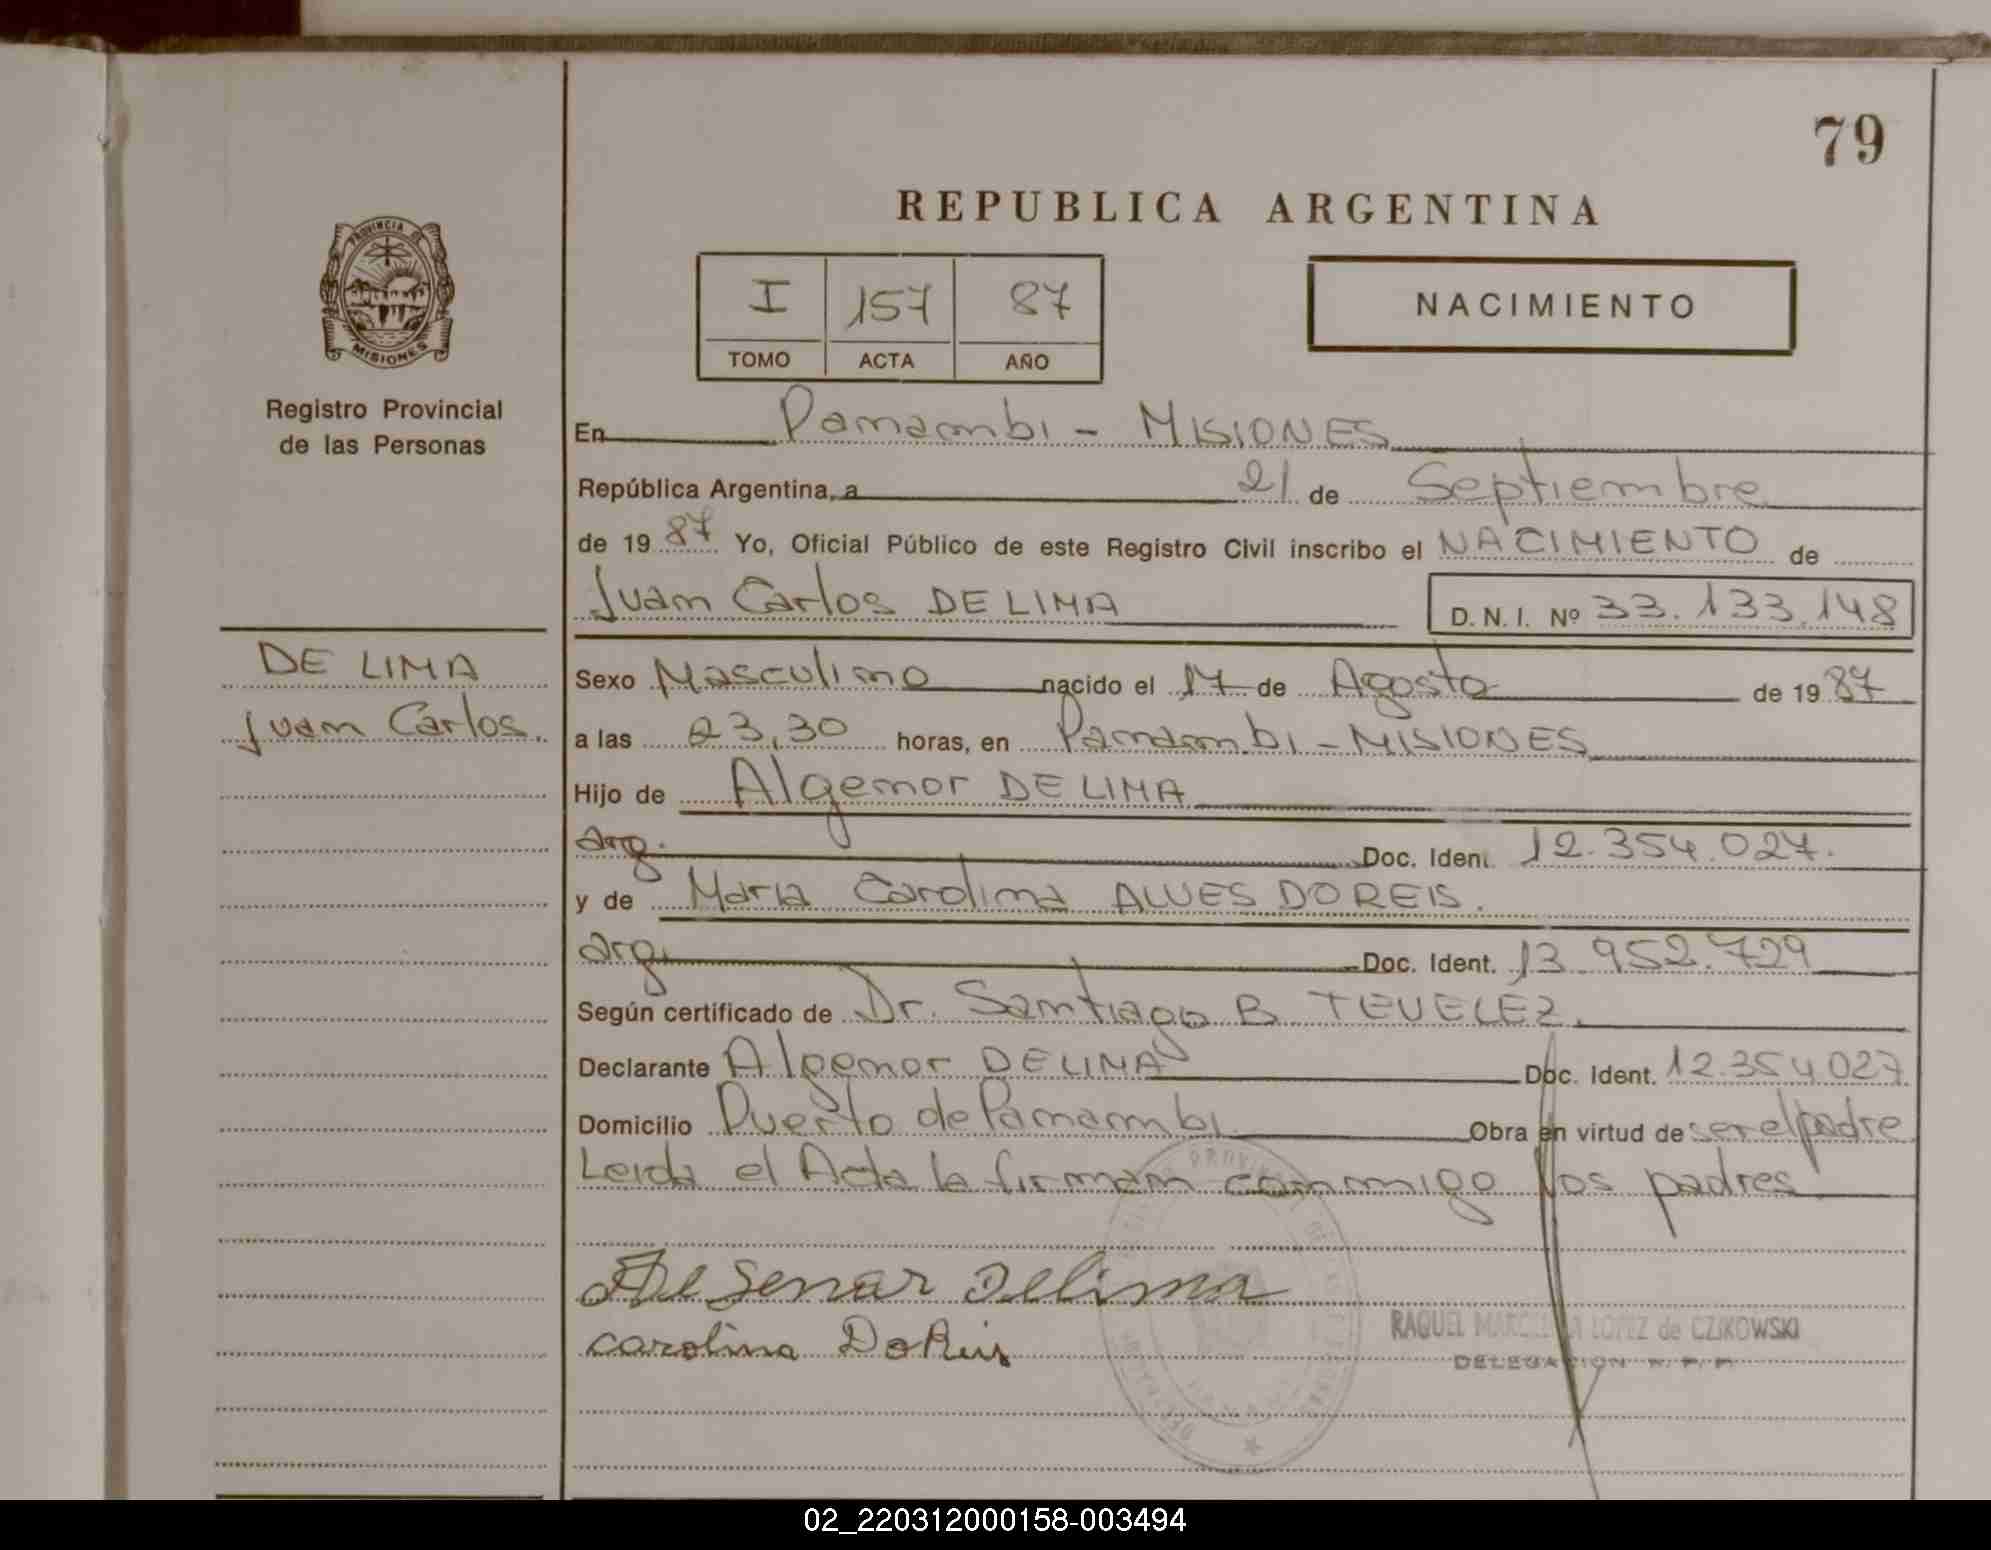 79
REPUBLICA ARGENTINA
PROVINCIA DE
MISIONES
Registro Provincial
de las Personas
I 157 87
TOMO ACTA AÑO
NACIMIENTO
En Panambi - MISIONES
República Argentina, a 21 de Septiembre
de 19 87 Yo, Oficial Público de este Registro Civil inscribo el NACIMIENTO de
Juan Carlos DE LIMA D. N. I. Nº 33.133.148
DE LIMA
Juan Carlos.
Sexo Masculino nacido el 17 de Agosto de 19 87
a las 23,30 horas, en Panambi - MISIONES
Hijo de Algemor DE LIMA
arg. Doc. Ident. 12.354.027.
y de Maria Carolina ALVES DOREIS.
arg. Doc. Ident. 13.952.729
Según certificado de Dr. Santiago B TEVELEZ.
Declarante Algemor DE LIMA Doc. Ident. 12.354.027
Domicilio Puerto de Panambi Obra en virtud de ser el padre
Leida el Acta la firman conmigo los padres
Delima
carolina DoReis
RAQUEL MARCELINA LOPEZ de CZIKOWSKI
DELEGACION R. P. P.
02_220312000158-003494